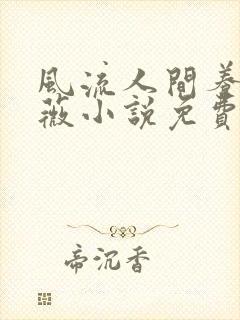 風流人間養
薇小說免費
帝沉香